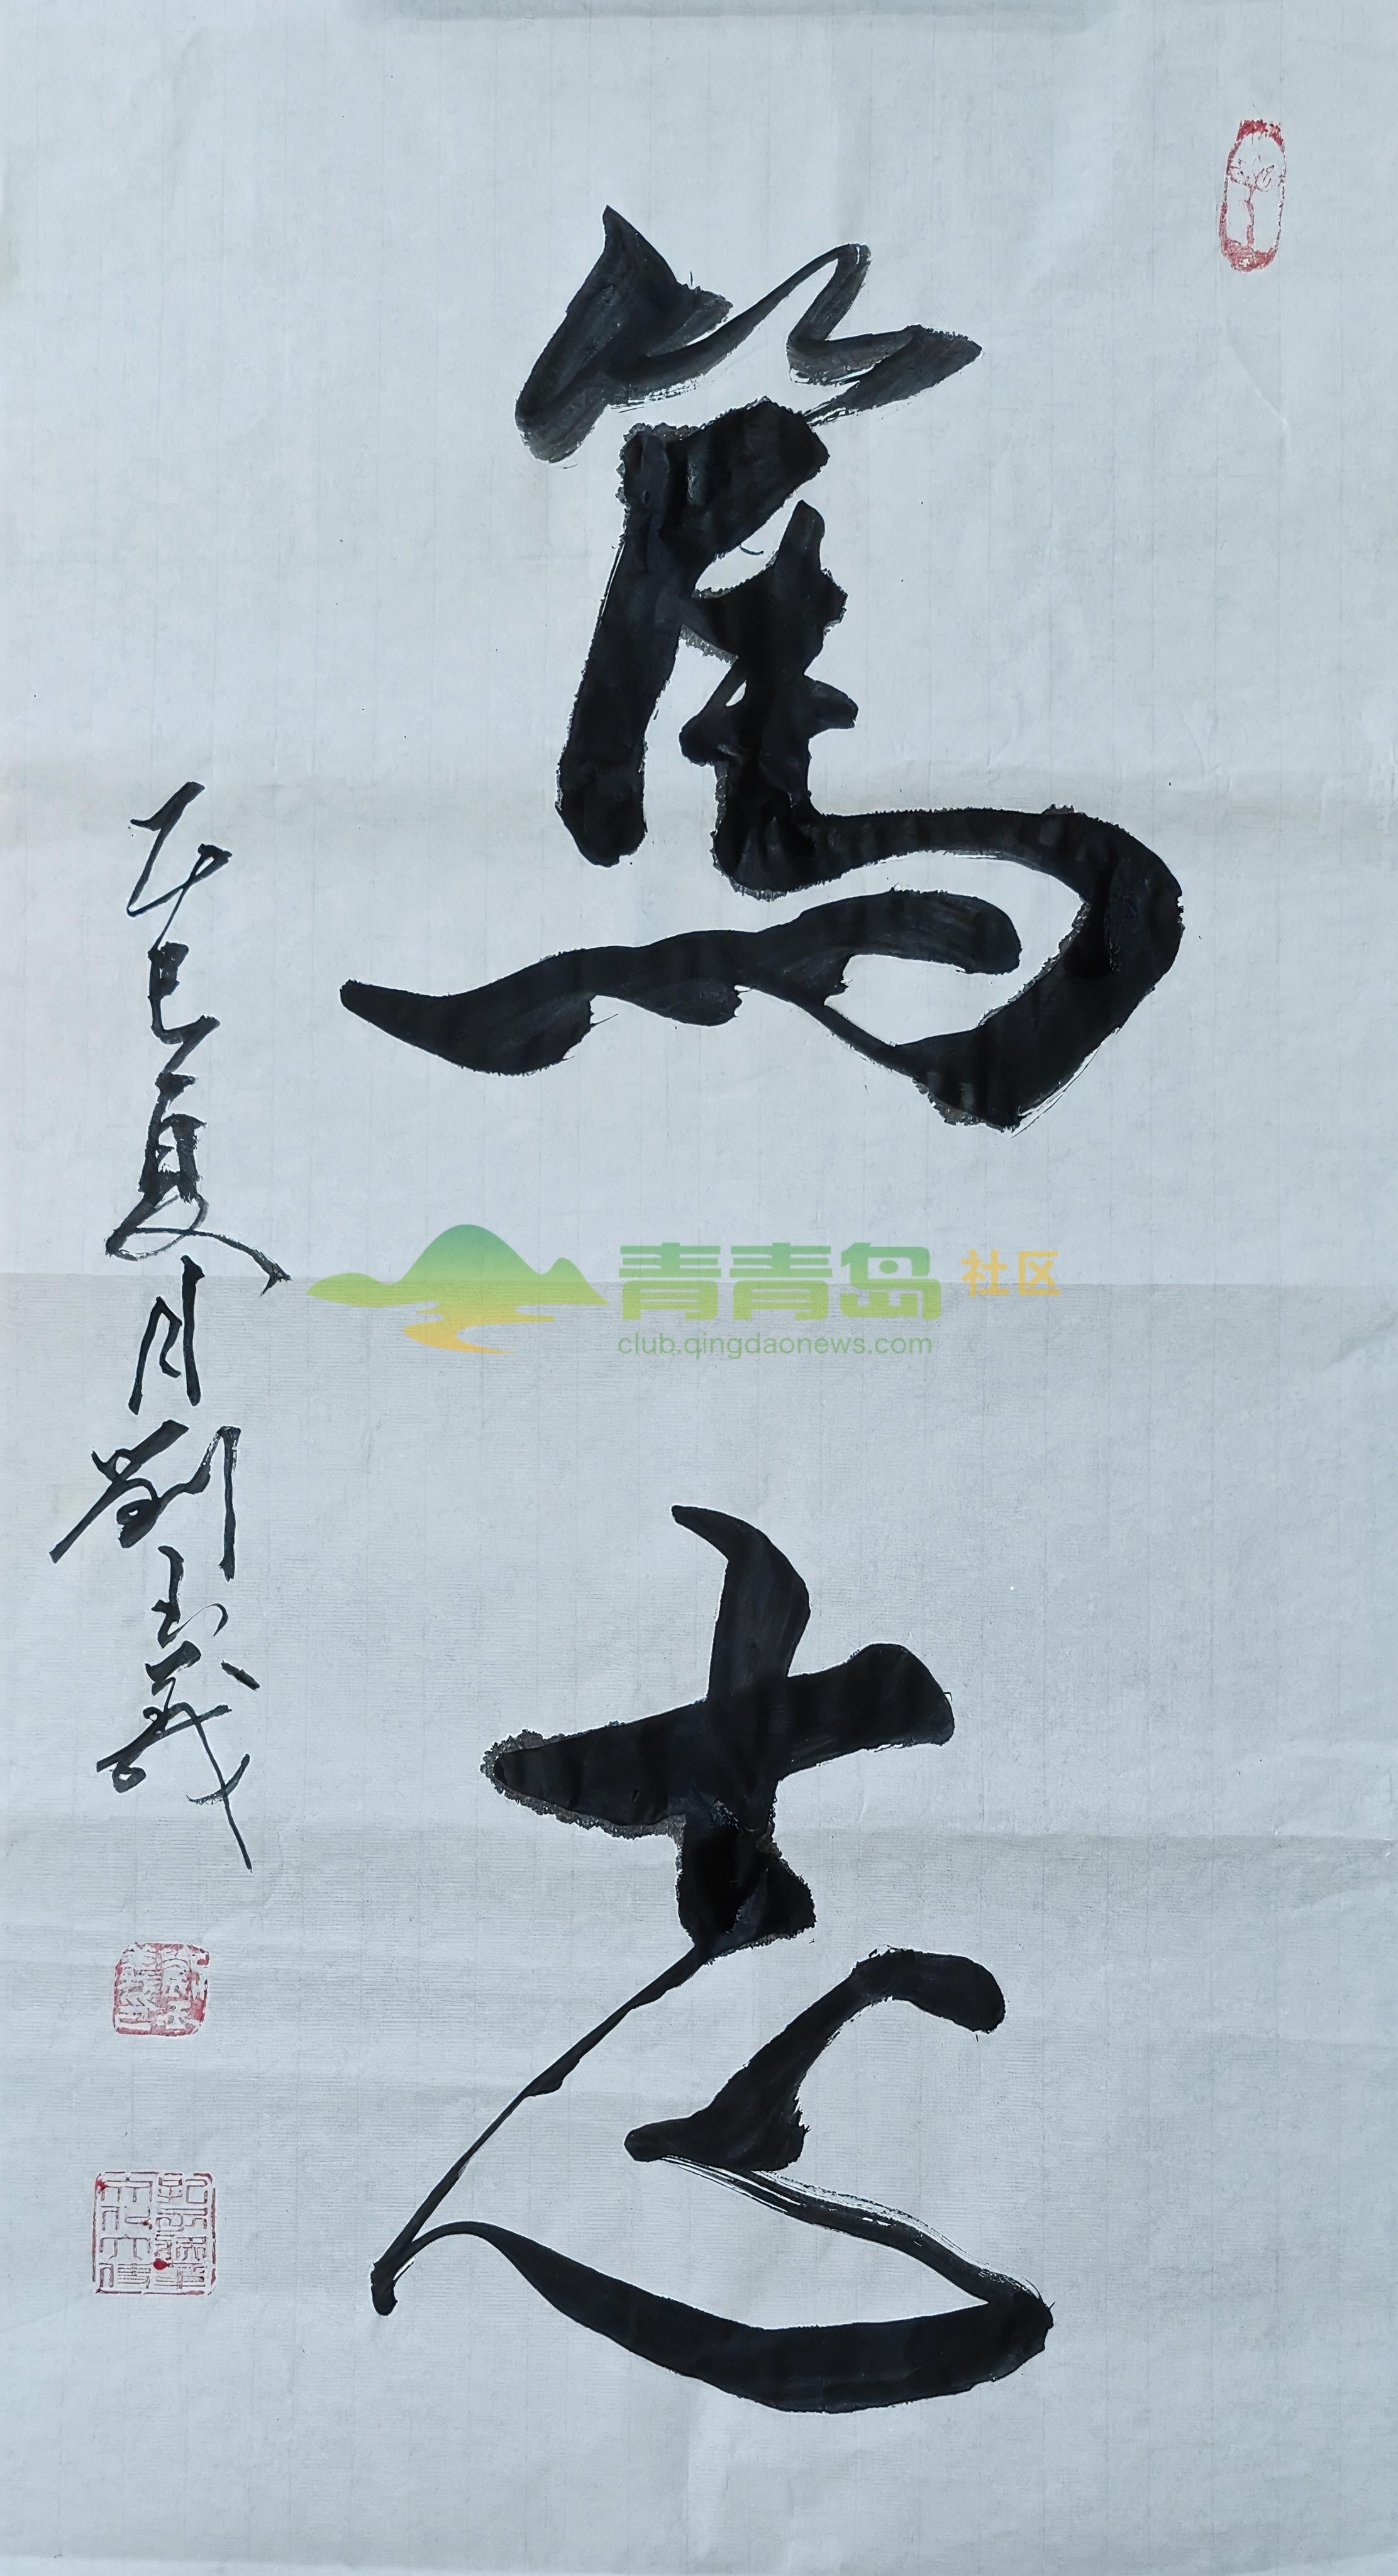 篤志
乙巳夏月劉玉義
青青岛 社区
club.qingdaonews.com